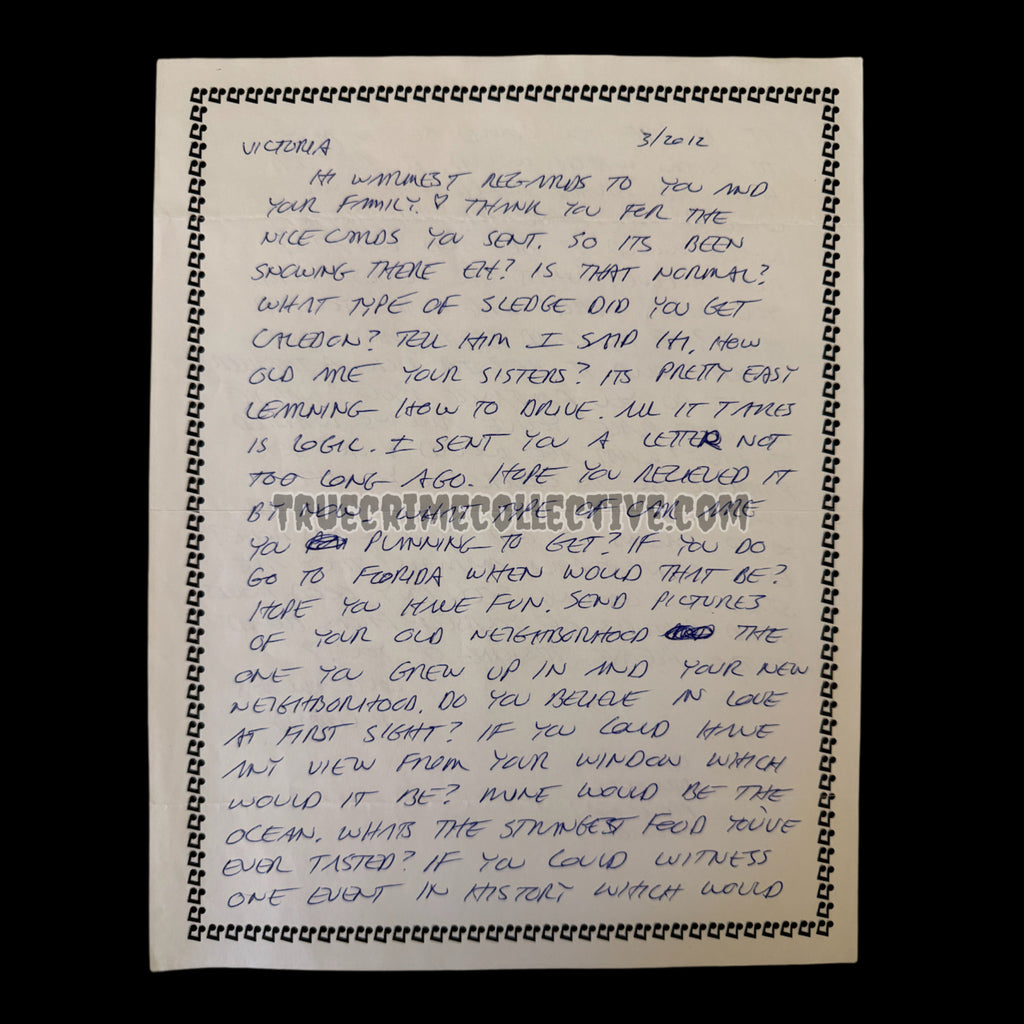 VICTORIA 3/2012
HI WARMEST REGARDS TO YOU AND
YOUR FAMILY. ♡ THANK YOU FOR THE
NICE CARDS YOU SENT. SO ITS BEEN
SNOWING THERE EH? IS THAT NORMAL?
WHAT TYPE OF SLEDGE DID YOU GET
CALEDON? TELL HIM I SAID HI. HOW
OLD ARE YOUR SISTERS? ITS PRETTY EASY
LEARNING HOW TO DRIVE. ALL IT TAKES
IS LOGIC. I SENT YOU A LETTER NOT
TOO LONG AGO. HOPE YOU RECIEVED IT
BY NOW. WHAT TYPE OF CAR ARE
TRUECRIMECOLLECTIVE.COM
YOU PLANNING TO GET? IF YOU DO
GO TO FLORIDA WHEN WOULD THAT BE?
HOPE YOU HAVE FUN. SEND PICTURES
OF YOUR OLD NEIGHBORHOOD THE
ONE YOU GREW UP IN AND YOUR NEW
NEIGHBORHOOD. DO YOU BELIEVE IN LOVE
AT FIRST SIGHT? IF YOU COULD HAVE
ANY VIEW FROM YOUR WINDOW WHICH
WOULD IT BE? MINE WOULD BE THE
OCEAN. WHATS THE STRANGEST FOOD YOU'VE
EVER TASTED? IF YOU COULD WITNESS
ONE EVENT IN HISTORY WHICH WOULD